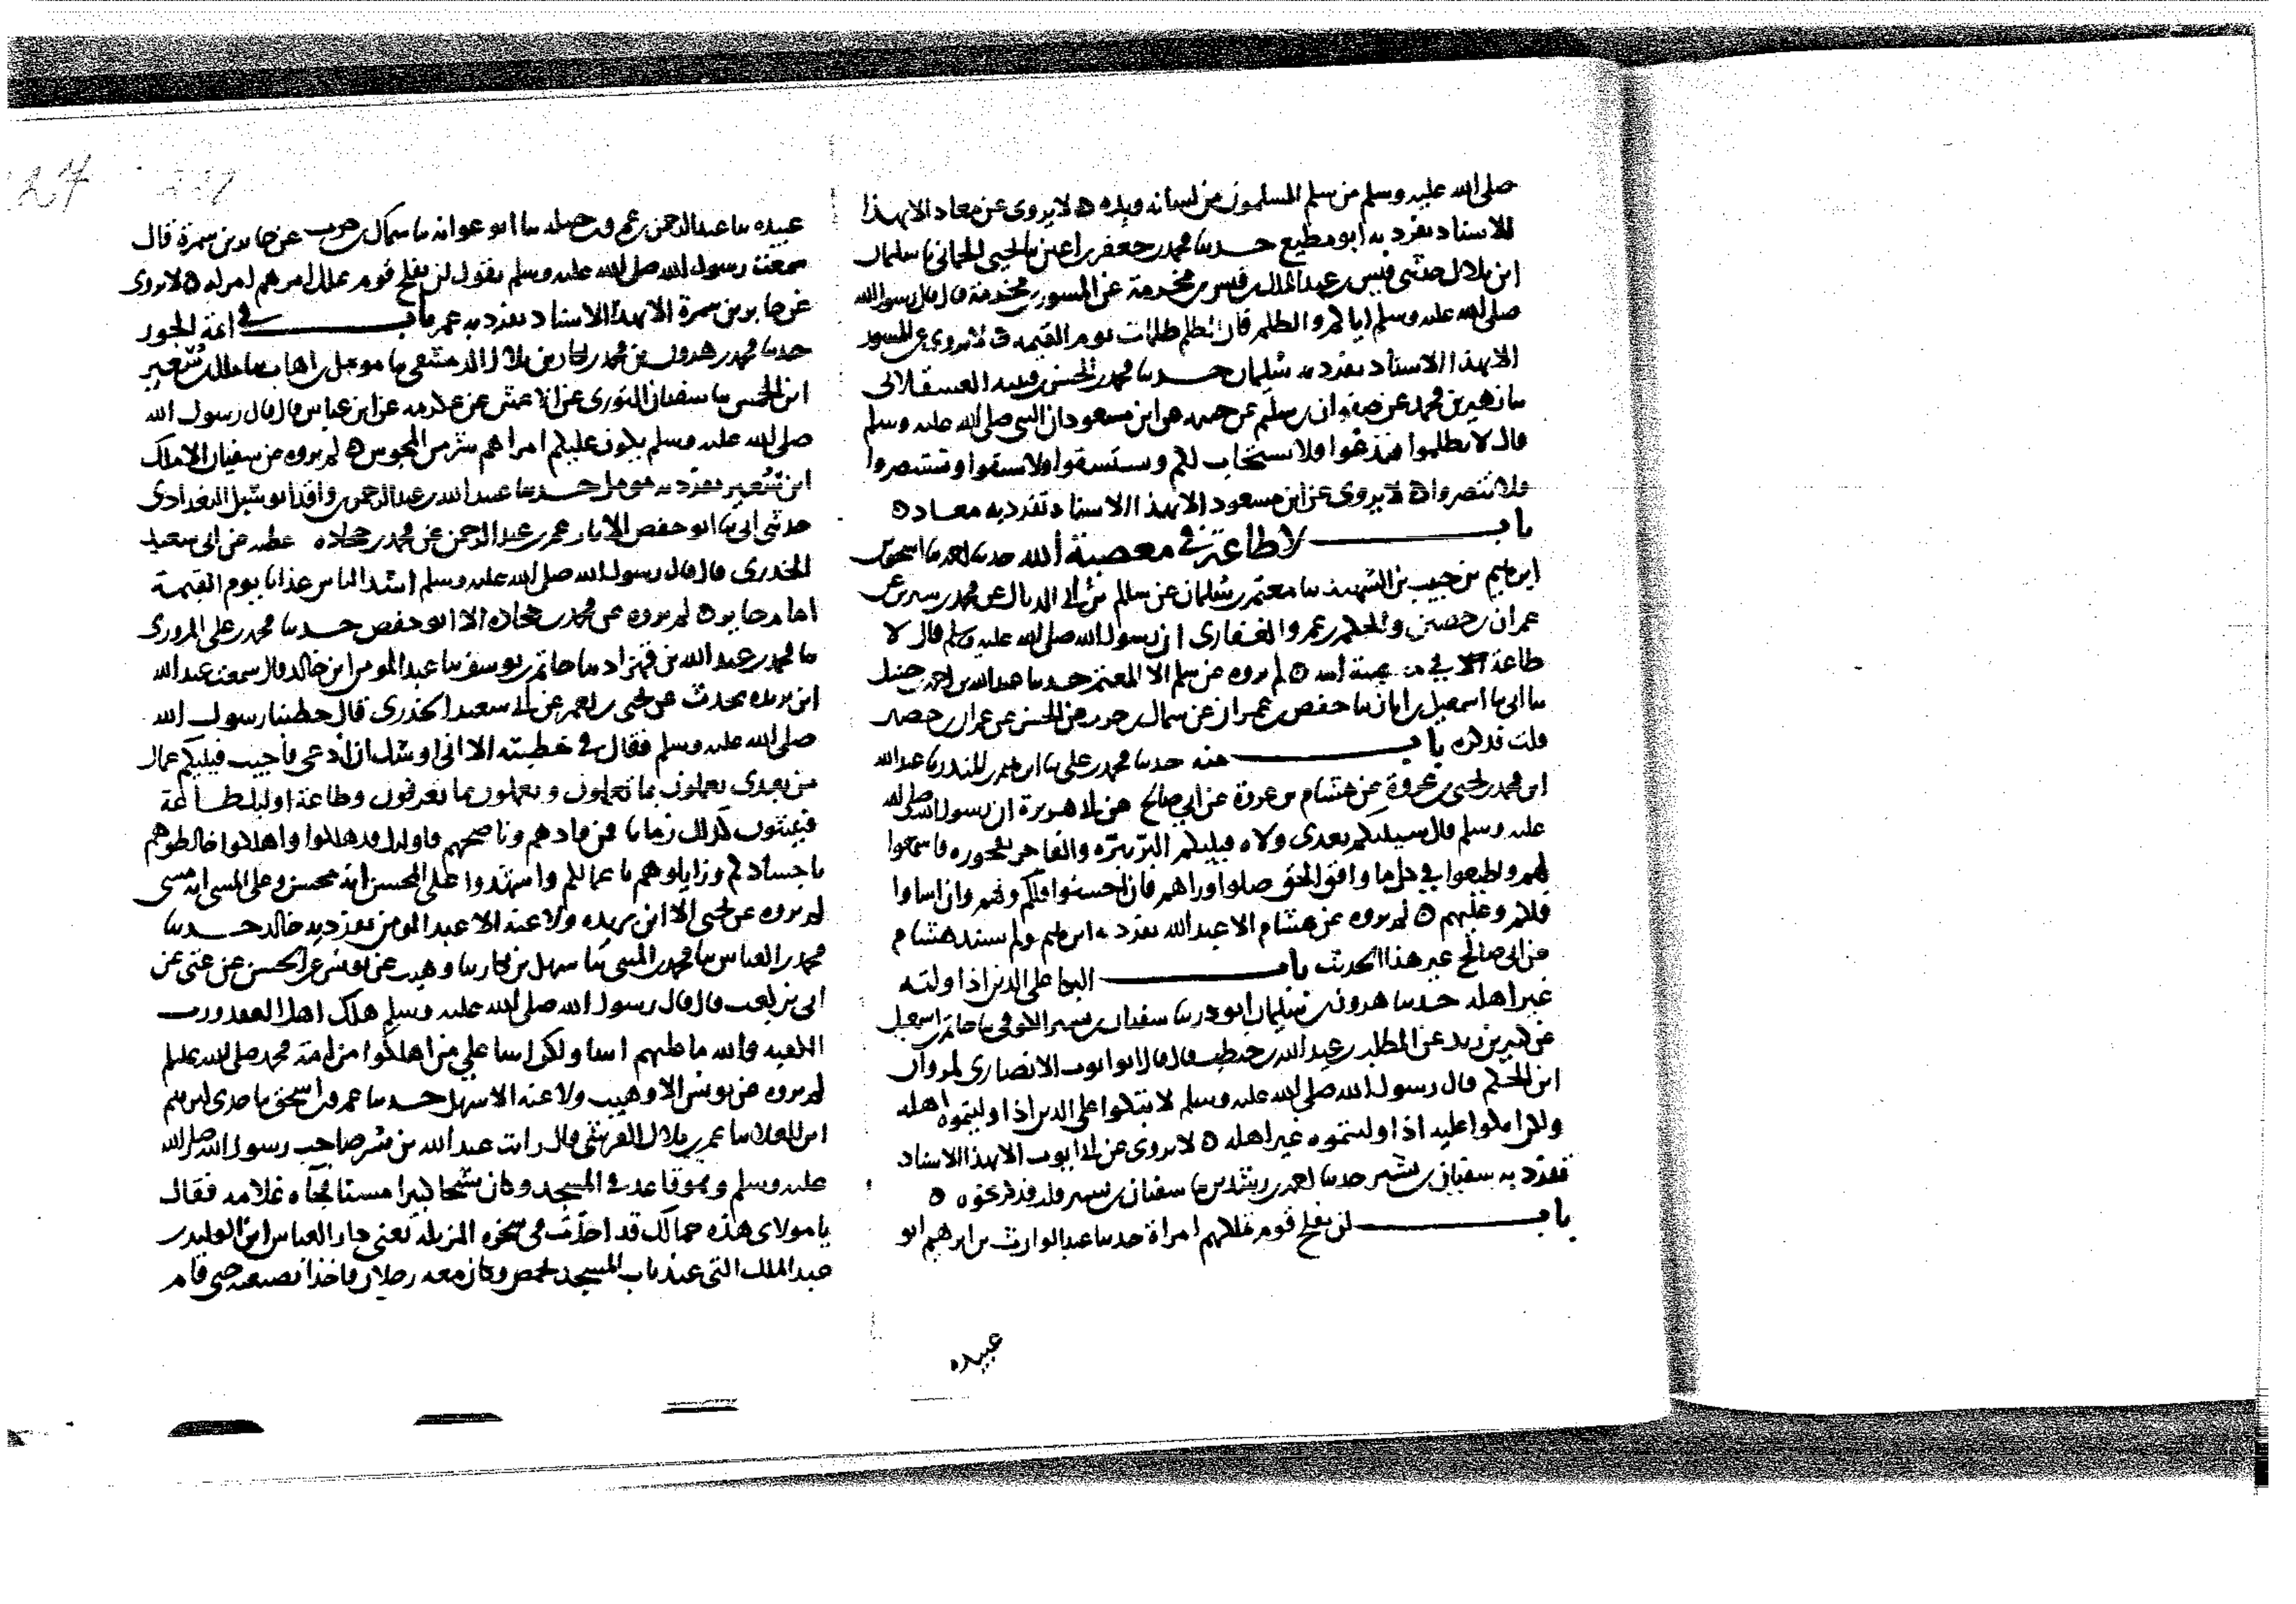 صلى الله عليه وسلم من سلم المسلمون من لسانه ويده ه لا يروى عن معاد الا بهذا
الاسناد تفرد به ابو مطيع حدثنا محمد بن جعفر بن اعين نا يحيى الحماني نا سليمان
ابن بلال حدثني قيس بن عبد الملك بن قيس بن مخرمة عن المسور بن مخرمة قال قال رسول الله
صلى الله عليه وسلم اياكم والظلم فان الظلم ظلمات يوم القيمة ه لا يروى عن المسور
الا بهذا الاسناد تفرد به سليمان حدثنا محمد بن الحسن بن قتيبة العسقلاني
نا زهير بن محمد عن صفوان بن سليم عن ابن مسعود ان النبي صلى الله عليه وسلم
قال لا تظلموا فتدعوا فلا يستجاب لكم وتستسقوا فلا تسقوا وتستنصروا
فلا تنصروا ه لا يروى عن ابن مسعود الا بهذا الاسناد تفرد به معاد ه
باب لا طاعة في معصية الله حدثنا احمد نا اسحق بن
ابرهيم بن حبيب بن الشهيد نا معتمر بن سليمان عن سلم بن ابي الذيال عن محمد بن سيرين عن
عمران بن حصين والحكم بن عمرو الغفاري ان رسول الله صلى الله عليه وسلم قال لا
طاعة في معصية الله ه لم يروه عن سلم الا المعتمر حدثنا عبد الله بن احمد بن حنبل
نا ابي نا اسمعيل بن ابان نا حفص بن عمران عن سماك بن حرب عن الحسن عن عمران بن حصين
قلت فذكره باب منه حدثنا محمد بن علي نا ابرهيم بن المنذر نا عبد الله
ابن محمد بن يحيى بن عروة عن هشام بن عروة عن ابي صالح عن ابي هريرة ان رسول الله صلى الله
عليه وسلم قال سيليكم بعدي ولاة فيليكم البر ببره والفاجر بفجوره فاسمعوا
لهم واطيعوا في كل ما وافق الحق وصلوا وراهم فان احسنوا فلكم ولهم وان اساوا
فلكم وعليهم ه لم يروه عن هشام الا عبد الله تفرد به ابرهيم ولم يسند هشام
عن ابي صالح غير هذا الحديث باب البكا على الدين اذا وليه
غير اهله حدثنا هرون بن سليمان ابو ذر نا سفيان بن بشر الكوفي نا حاتم بن اسمعيل
عن كثير بن زيد عن المطلب بن عبد الله بن حنطب قال قال ابو ايوب الانصاري لمروان
ابن الحكم قال رسول الله صلى الله عليه وسلم لا تبكوا على الدين اذا وليتموه اهله
ولكن ابكوا عليه اذا وليتموه غير اهله ه لا يروى عن ابي ايوب الا بهذا الاسناد
تفرد به سفيان بن بشر حدثنا احمد بن رشدين نا سفيان بن بشر قلت فذكر نحوه ه
باب لن يفلح قوم تملكهم امراة حدثنا عبد الوارث بن ابرهيم ابو
عبيده
عبيده نا عبد الرحمن بن عمرو بن جبلة نا ابو عوانه نا سماك بن حرب عن جابر بن سمرة قال
سمعت رسول الله صلى الله عليه وسلم يقول لن يفلح قوم يملك امرهم امراة ه لا يروى
عن جابر بن سمرة الا بهذا الاسناد تفرد به عمر باب في ائمة الجور
حدثنا محمد بن هرون بن محمد بن بكار بن بلال الدمشقي نا مومل بن اهاب نا مالك بن سعير
ابن الخمس نا سفيان الثوري عن الاعمش عن عكرمه عن ابن عباس قال قال رسول الله
صلى الله عليه وسلم يكون عليكم امرا هم شر من المجوس ه لم يروه عن سفيان الا مالك
ابن سعير تفرد به مومل حدثنا عبد الله بن عبد الرحمن بن واقد ابو شبل البغدادي
حدثني ابي نا ابو حفص الابار عمر بن عبد الرحمن عن محمد بن جحاده عن عطيه عن ابي سعيد
الخدري قال قال رسول الله صلى الله عليه وسلم اشد الناس عذابا يوم القيمة
امام جاير ه لم يروه عن محمد بن جحاده الا ابو حفص حدثنا محمد بن علي المروزي
نا محمد بن عبد الله بن قهزاد نا حاتم بن يوسف نا عبد المومن ابن خالد قال سمعت عبد الله
ابن بريده يحدث عن يحيى بن يعمر عن ابي سعيد الخدري قال خطبنا رسول الله
صلى الله عليه وسلم فقال في خطبته الا اني اوشك ان ادعى فاجيب فيليكم عمال
من بعدي يعملون بما تعلمون ويعملون بما تعرفون وطاعة اوليك طاعة
فتلبثون كذلك زمانا فمن قادهم وناصحهم فاوليك قد هلكوا واهلكوا خالطوهم
باجسادكم وزايلوهم باعمالكم واشهدوا على المحسن انه محسن وعلى المسي انه مسي
لم يروه عن يحيى الا ابن بريده ولا عنه الا عبد المومن تفرد به خالد حدثنا
محمد بن العباس نا محمد بن المثنى نا سهل بن بكار نا وهيب عن يونس عن الحسن عن عتي عن
ابي بن كعب قال قال رسول الله صلى الله عليه وسلم هلك اهل العقد ورب
الكعبه والله ما عليهم اسا ولكن اسا على من اهلكوا من امة محمد صلى الله عليه وسلم
لم يروه عن يونس الا وهيب ولا عنه الا سهل حدثنا عمرو بن اسحق نا جدي ابرهيم
ابن العلا نا عمر بن بلال القرشي قال رايت عبد الله بن بسر صاحب رسول الله صلى الله
عليه وسلم وهو قاعد في المسجد وكان شيخا كبيرا مسنا فجاه غلامه فقال
يا مولاي هذه حمالك قد اخذت في سخره المنزله تعني دار العباس ابن الوليد بن
عبد الملك التي عند باب المسجد بحمص وكان معه رجلان فاخذا بضبعه حتى قام